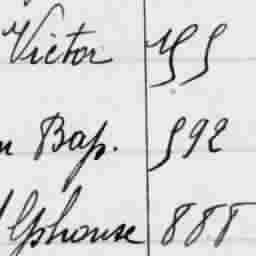 Victor 455
n Bap. 592
Alphonse 888